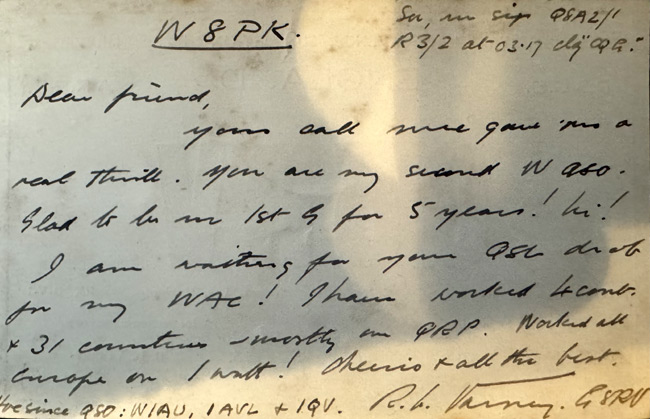 W8PK.
Sa, ur sigs QSA2/1
R3/2 at 03.17
Dear friend,
yours call sure gave me a
real thrill. You are my second W QSO.
Glad to be ur 1st G for 5 years! hi!
I am waiting for your QSL drob
for my WAC! I have worked 4 cont.
+ 31 countries - mostly on QRP. Worked all
europe on 1 watt! Cheerio + all the best.
Hve since QSO: W1AU, 1AVL + 1QV. R. L. Varney. G5RV